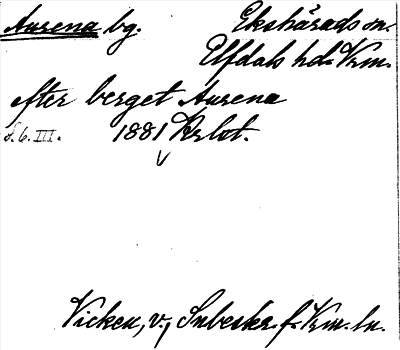 Aurena bg. Ekshärads sn.
Elfdals hd. Vrm.
efter berget Aurena
f. 6. III. 1881 Arbot.
Vicken, v., Inbeskr. f. Vrm. ln.